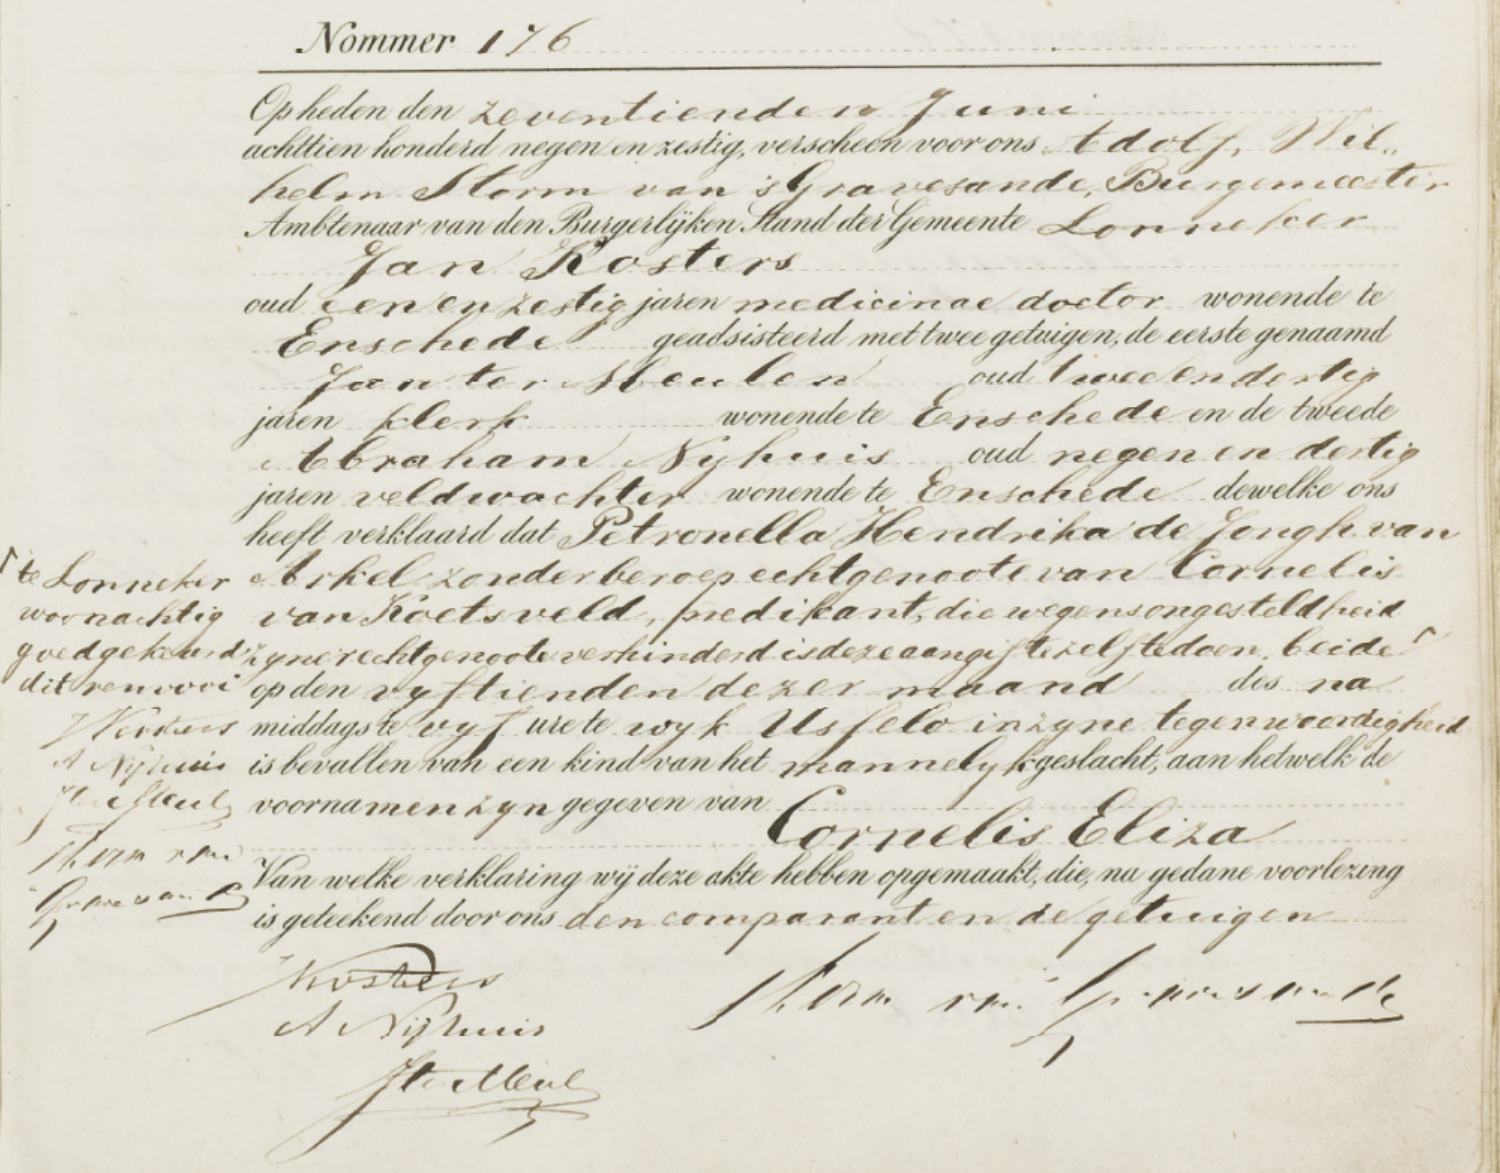 Nommer 176
Op heden den zeventienden Juni
achttien honderd negen en zestig, verscheen voor ons Adolf, Wil„
helm Storm van 'sGravesande, Burgemeester
Ambtenaar van den Burgerlijken Stand der Gemeente Lonneker
Jan Kosters
oud een en zestig jaren medicinae doctor wonende te
Enschede geadsisteerd met twee getuigen, de eerste genaamd
Jan ter Meulen oud twee en dertig
jaren klerk wonende te Enschede en de tweede
Abraham Nyhuis oud negen en dertig
jaren veldwachter wonende te Enschede dewelke ons
heeft verklaard dat Petronella Hendrika de Jongh van
Arkel zonder beroep echtgenoote van Cornelis
van Koetsveld, predikant, die wegens ongesteldheid
zyner echtgenoote verhinderd is deze aangifte zelf te doen, beide ⌈
op den vyftienden dezer maand des na
middags te vyf ure te wyk Usselo in zyne tegenwoordigheid
is bevallen van een kind van het mannelyk geslacht, aan hetwelk de
voornamen zyn gegeven van
Cornelis Eliza
Van welke verklaring wij deze akte hebben opgemaakt, die, na gedane voorlezing
is geteekend door ons den comparant en de getuigen
⌈ te Lonneker
woonachtig
goedgekeurd
dit renvooi
JKosters
A Nijhuis
JterMeul
Storm van
'sGravesande
JKosters
A Nijhuis
Jte Meul
Storm van 'sGravesande